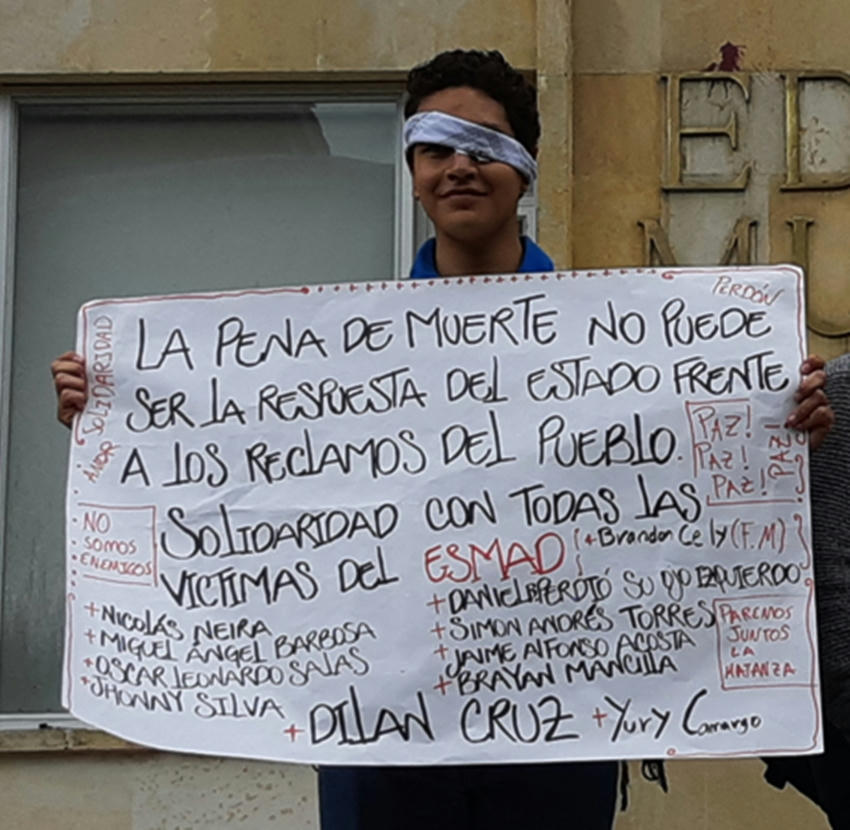 ED
MU
PERDÓN
AMOR SOLIDARIDAD
LA PENA DE MUERTE NO PUEDE
SER LA RESPUESTA DEL ESTADO FRENTE
A LOS RECLAMOS DEL PUEBLO.
PAZ!
PAZ!
PAZ!
PAZ!
SOLIDARIDAD CON TODAS LAS
VICTIMAS DEL ESMAD
NO
SOMOS
ENEMIGOS
+Brandon Cely (F.M)
+DANIEL PERDIÓ SU OJO IZQUIERDO
+NICOLÁS NEIRA
+SIMON ANDRÉS TORRES
+MIGUEL ÁNGEL BARBOSA
+JAIME ALFONSO ACOSTA
+OSCAR LEONARDO SALAS
+BRAYAN MANCILLA
+JHONNY SILVA
PAREMOS
JUNTOS
LA
MATANZA
+DILAN CRUZ +Yury Camargo